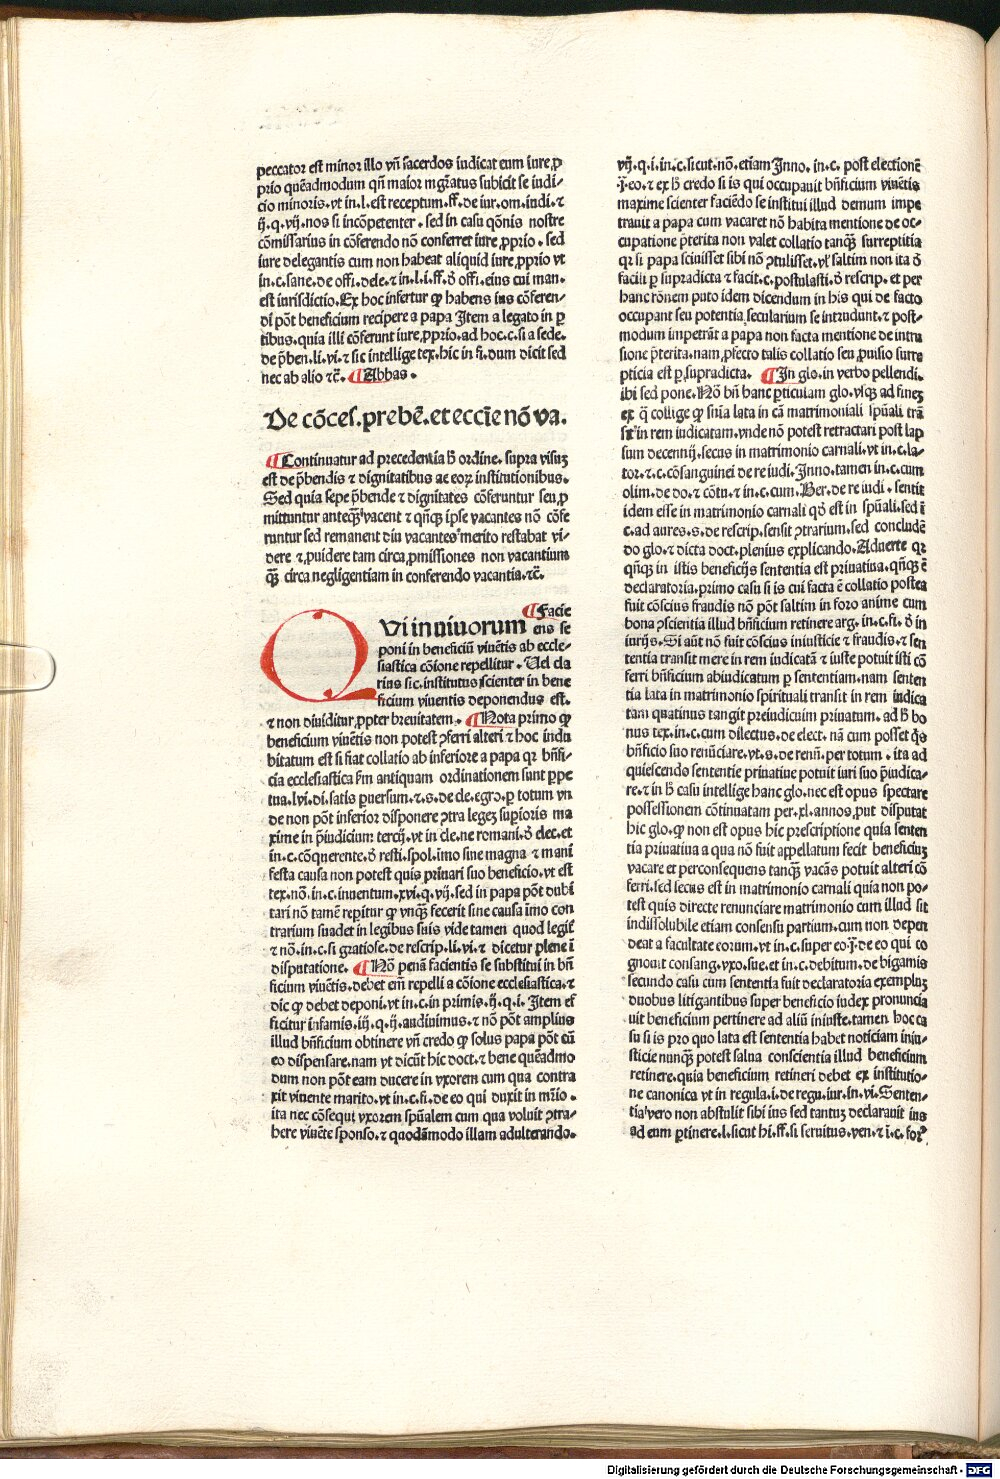 peccator est minor illo vn̄ sacerdos iudicat eum iure ꝓ
prio quēadmodum qn̄ maior mgr̄atus subicit se iudi-
cio minoris. vt in. l. est receptum. ff. de iur. om. iudi. ⁊
ij. q. vij. nos si incōpetenter. sed in casu qōnis nostre
cōmissarius in cōferendo nō conferret iure ꝓprio. sed
iure delegantis cum non habeat aliquid iure ꝓprio vt
in. c. sane. de offi. dele. ⁊ in. l. i. ff. đ offi. eius cui man.
est iurisdictio. Ex hoc infertur ꝙ habens ius cōferen-
di pōt beneficium recipere a papa Item a legato in ꝑ
tibus. quia illi cōferunt iure ꝓprio. ad hoc. c. si a sede.
de p̄ben. li. vi. ⁊ sic intellige tex. hic in fi. dum dicit sed
nec ab alio ⁊c̄. ¶ Abbas.
De cōces. prebē. et eccīe nō va.
¶ Continuatur ad precedentia ħ ordine. supra visuꝫ
est de p̄bendis ⁊ dignitatibus ac eoꝝ institutionibus.
Sed quia sepe p̄bende ⁊ dignitates cōferuntur seu ꝓ
mittuntur anteqꝫ vacent ⁊ qn̄qꝫ ipse vacantes nō cōfe
runtur sed remanent diu vacantes merito restabat vi-
dere ⁊ ꝓuidere tam circa ꝓmissiones non vacantium
qꝫ circa negligentiam in conferendo vacantia. ⁊c̄.
¶ Facie
QVi in viuorum ens se
poni in beneficiū viuētis ab eccle-
siastica cōione repellitur. Uel cla
rius si c. institutus scienter in bene
ficium viuentis deponendus est.
⁊ non diuiditur ꝓpter breuitatem. ¶ Nota primo ꝙ
beneficium viuētis non potest ꝯferri alteri ⁊ hoc indu
bitatum est si fiat collatio ab inferiore a papa qꝛ bn̄fi-
cia ecclesiastica ẜm antiquam ordinationem sunt ꝑpe
tua. lvi. di. satis ꝑuersum. ⁊. s. de cle. egro. ꝑ totum vn
de non pōt inferior disponere ꝯtra legeꝫ supioris ma
xime in p̄iudicium tercij. vt in cle. ne romani. đ elec. et
in. c. cōquerente. đ resti. spol. imo sine magna ⁊ mani
festa causa non potest quis priuari suo beneficio. vt est
tex. nō. in. c. inuentum. xvi. q. vij. sed in papa pōt dubi
tari nō tamē reꝑitur ꝙ vnqꝫ fecerit sine causa imo con
trarium suadet in legibus suis vide tamen quod legiſ
⁊ nō. in. c. si gratiose. de rescrip. li. vi. ⁊ dicetur plene ī
disputatione. ¶ Nō penā facientis se substitui in bn̄
ficium viuētis. debet em̄ repelli a cōione ecclesiastica. ⁊
dic ꝙ debet deponi. vt in. c. in primis. ij. q. i. Item ef
ficitur infamis. iij. q. ij. audiuimus. ⁊ nō pōt amplius
illud bn̄ficium obtinere vn̄ credo ꝙ solus papa pōt cū
eo dispensare. nam vt dicūt hic doct. ⁊ bene quēadmo
dum non pōt eam ducere in vxorem cum qua contra
xit viuente marito. vt in. c. fi. de eo qui duxit in mr̄io.
ita nec cōsequi vxorem spūalem cum qua voluit ꝯtra-
here viuēte sponso. ⁊ quodāmodo illam adulterando.
vij. q. i. in. c. sicut. nō. etiam Inno. in. c. post electionē
.j. eo. ⁊ ex ħ credo si is qui occupauit bn̄ficium viuētis
maxime scienter faciēdo se institui illud demum impe
trauit a papa cum vacaret nō habita mentione de oc-
cupatione p̄terita non valet collatio tanqꝫ surreptitia
qꝛ si papa sciuisset sibi nō ꝯtulisset. vl' saltim non ita đ
facili ꝑ supradicta ⁊ facit. c. postulasti. đ rescrip. et per
hanc rōnem puto idem dicendum in his qui de facto
occupant seu potentia secularium se intrudunt. ⁊ post-
modum impetrāt a papa non facta mentione de intru
sione p̄terita. nam ꝓfecto talis collatio seu ꝓuisio surre
pticia est ꝑ supradicta. ¶ In glo. in verbo pellendi.
ibi sed pone. Nō bn̄ hanc ꝑticulam glo. vsqꝫ ad fineꝫ
ex q̄ collige ꝙ sn̄ia lata in cā matrimoniali spūali trā
sit in rem iudicatam. vnde nō potest retractari post lap
sum decennij. secus in matrimonio carnali. vt in. c. la-
tor. ⁊. c. cōsanguinei de re iudi. Inno. tamen in. c. cum
olim. de do. ⁊ cōtu. ⁊ in. c. cum. Ber. de re iudi. sentit
idem esse in matrimonio carnali qđ est in spūali. sed ī
c. ad aures. s. de rescrip. sensit ꝯtrarium. sed concludē
do glo. ⁊ dicta doct. plenius explicando. Aduerte qꝛ
qn̄qꝫ in istis beneficijs sententia est priuatiua. qn̄qꝫ ē
declaratoria. primo casu si is cui facta ē collatio postea
fuit cōscius fraudis nō pōt saltim in foro anime cum
bona ꝯscientia illud bn̄ficium retinere arg. in. c. fi. đ in
iurijs. Si aūt nō fuit cōscius iniusticie ⁊ fraudis. ⁊ sen
tentia transit mere in rem iudicatā ⁊ iuste potuit isti cō
ferri bn̄ficium abiudicatum ꝑ sententiam. nam senten
tia lata in matrimonio spirituali transit in rem iudica
tam quatinus tangit preiudicium priuatum. ad ħ bo
nus tex. in. c. cum dilectus. de elect. nā cum posset q̄s
bn̄ficio suo renūciare. vt. s. de renū. per totum. ita ad
quiescendo sententie priuatiue potuit iuri suo p̄iudica-
re. ⁊ in ħ casu intellige hanc glo. nec est opus spectare
possessionem cōtinuatam per. xl. annos ꝓut disputat
hic glo. ꝙ non est opus hic prescriptione quia senten
tia priuatiua a qua nō fuit appellatum fecit beneficiuꝫ
vacare et perconsequens tanqꝫ vacās potuit alteri cō
ferri. sed secus est in matrimonio carnali quia non po-
test quis directe renunciare matrimonio cum illud sit
indissolubile etiam consensu partium. cum non depen
deat a facultate eorum. vt in. c. super eo. j. de eo qui co
gnouit consang. vxo. sue. et in. c. debitum. de bigamis
secundo casu cum sententia fuit declaratoria exempluꝫ
duobus litigantibus super beneficio iudex pronuncia
uit beneficium pertinere ad aliū iniuste. tamen hoc ca
su si is pro quo lata est sententia habet noticiam iniu-
sticie nunqꝫ potest salua conscientia illud beneficium
retinere. quia beneficium retineri debet ex institutio-
ne canonica vt in regula. i. de regu. iur. in. vi. Senten-
tia vero non abstulit sibi ius sed tantuꝫ declarauit ius
ad eum ꝑtinere. l. sicut hi. ff. si seruitus. ven. ⁊ ī. c. for
Digitalisierung gefördert durch die Deutsche Forschungsgemeinschaft - DFG